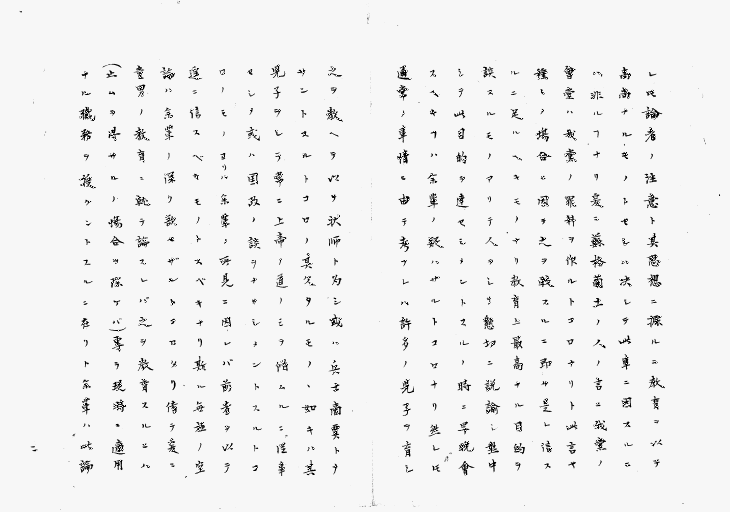 レ此論者ノ注意ト其思想ニ據ルニ教育ニ以テ
高尚ナルモノトセシハ決シテ此事ニ因スルニ
ハ非ルフナリ爰ニ蘇格蘭土ノ人ノ言ニ我黨ノ
會堂ハ我黨ノ罪科ヲ作ルトコロナリト此言ヤ
種々ノ場合ニ因テ之ヲ験スルニ即チ是レ信ス
ルニ足ルヘキモノナリ教育上最高ナル目的ヲ
談スルモノアリテ人タシリ懇切ニ説諭シ盤中
シテ此目的ヲ達セシメントスルノ時ニ早晩會
スヘキフハ余輩ノ疑ハザルトコロナリ然レ𪜈
通常ノ事情ニ由テ考フレハ許多ノ児子ヲ育シ
之ヲ教ヘテ以テ状師ト為シ或ハ兵士商賈トヲ
サントスルトコロノ其父タルモノヽ如キハ其
児子ヲシテ常ニ上帝ノ道ノミヲ惟ムルニ從事
セシテ或ハ国政ノ談ヲナサシメントスルトコ
ロノモノヨリハ余輩ノ所見ニ因レバ前者ヲ以テ
遙ニ信スベキモノトスベキナリ斯ル毎短ノ空
論ハ余輩ノ深ク欲セザルトコロタリ偖テ爰ニ
童男ノ教育ニ就テ論スレバ之ヲ教育スルニハ
(止ムヲ得サルノ場合ヲ除ケバ)専ラ現游ニ適用
ナル職務ヲ授ケントスルニ在リト余輩ハ此論